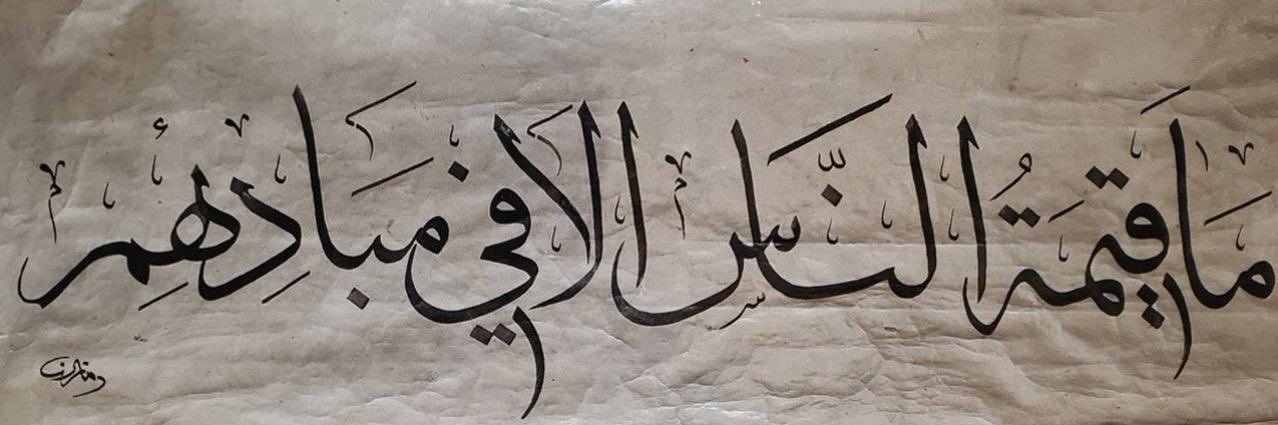 مَا قِيمَةُ النَّاسِ الا في مَبَادِئهِمْ